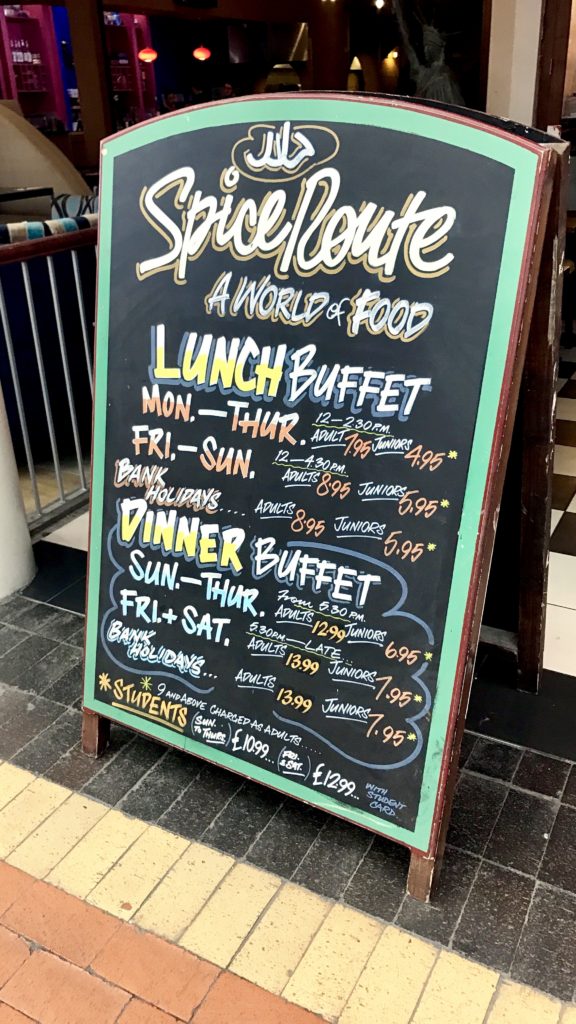 حلال
Spice Route
A WORLD of FOOD
LUNCH BUFFET
MON.—THUR. 12-2:30 P.M. ADULT 7.95 JUNIORS 4.95*
FRI.—SUN. 12-4.30 P.M. ADULTS 8.95 JUNIORS 5.95*
BANK HOLIDAYS.... ADULTS 8.95 JUNIORS 5.95*
DINNER BUFFET
SUN.—THUR. From 5.30 P.M. ADULTS 12.99 JUNIORS 6.95*
FRI.+SAT. 5.30 P.M.—LATE... ADULTS 13.99 JUNIORS 7.95*
BANK HOLIDAYS... ADULTS 13.99 JUNIORS 7.95*
* 9 AND ABOVE CHARGED AS ADULTS....
*STUDENTS (SUN. TO THURS) £10.99... (FRI. & SAT.) £12.99... WITH STUDENT CARD.